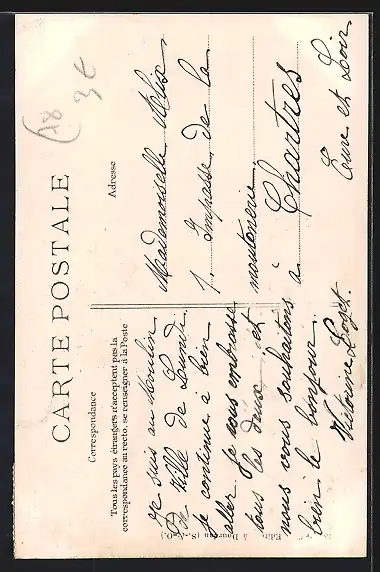 CARTE POSTALE
Correspondance
Tous les pays étrangers n'acceptent pas la
correspondance au recto, se renseigner à la Poste
Adresse
Je suis au Moulin
de Ville de Lundi.
je continue a bien
aller Je vous embrasse
tous les deux et
nous vous souhaitons
bien le bonjour.
Victorine Loget.
Mademoiselle Alix
7. Impasse de la
moutonerie
à Chartres
Eure et Loir
3€